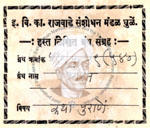 इ. वि. का. राजवाडे संशोधन मंडळ धुळें.
हस्त लिखित ग्रंथ संग्रह
ग्रंथ क्रमांक
ग्रंथ नाम
विषय कथा पुराण.